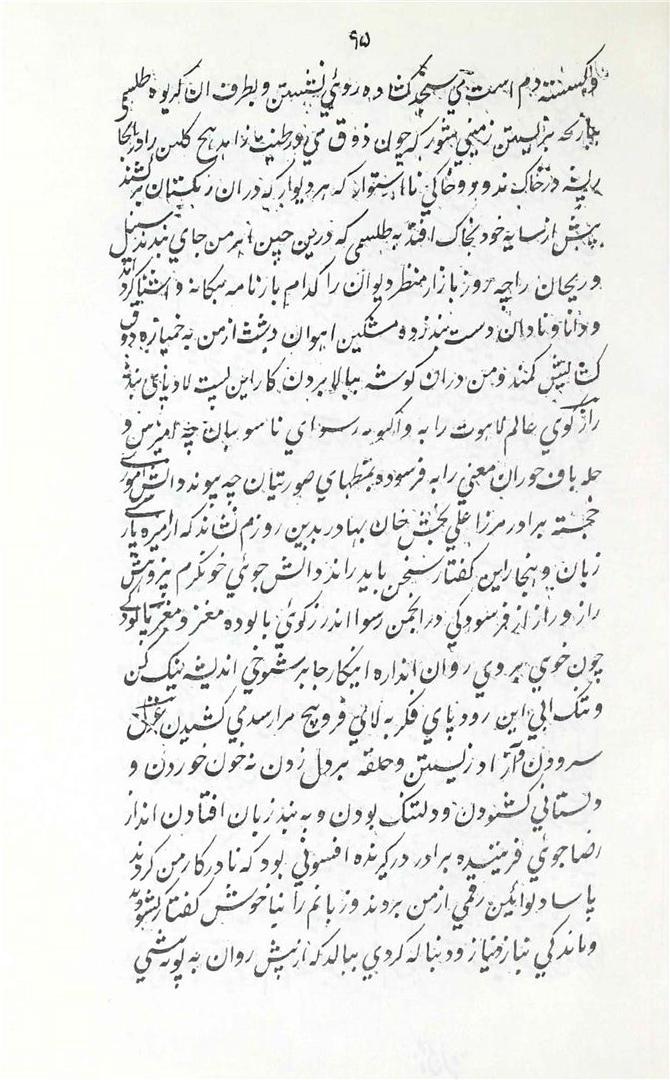 ۹۵
دم است می سنجد کشاده روئی نشستن و بطرف ان کریوه طلسمی
زمینی شور که چون ذوق می در طینت زاهد هیچ کلبن را در انجا
ریشه در خاک ندود و خاکی نااستوار که هر دیوار که دران ریکستان بر کشند
پیش از سایه خود بخاک افتد به طلسمی که درین چین هنر من جای نبندند سنبل
و ریحان را چه روز بازار منظر دیوان را کدام بارنامه بیکانه و اشنا کرد اند
و دانا و نادان دست بند زده مشکین اهوان دشت از من به خمیازه ذوق
کشایش کمند و من دران کوشه ببالا بردن کار این پست لاد پای بند
راز کوی عالم لاهوت را به واکویه رسوای ناسوتیان چه امیزش و
حله باف حوران معنی را به فرسوده نمطهای صورتیان چه پیوند دانش اموزی
خجسته برادر مرزا علی بخش خان بهادر بدین روزم نشاند که از امیزه پارسی
زبان و هنجار این کفتار سخن باید راند دانش جوئی خونکرم پژوهش
راز و راز از فرسودکی در انجمن رسوا اندرز کوئی پالوده مغز و مغز پالودکی
چون خوی بر دی روان اندازه اینکار جا بر شوخی اندیشه نیک کن
و تنک ابی این رود پای فکر به لائی فرو پیچ مرا رسدی کشیدن و غزل
سرودن و آزاد زیستن و حلقه بر دل زدن نه خون خوردن و
دلستانی کشودن و دلتنک بودن و به بند زبان افتادن انداز
رضا جوئی فریبنده برادر در کیرنده افسونی بود که تا در کار من کردند
پاسا دیوائین رقمی از من بردند و زبانم را بناخوش کفتار کشودند
و ماندکی نیاز و دنباله کردی ببالد که از پیش روان به پویه پیشی